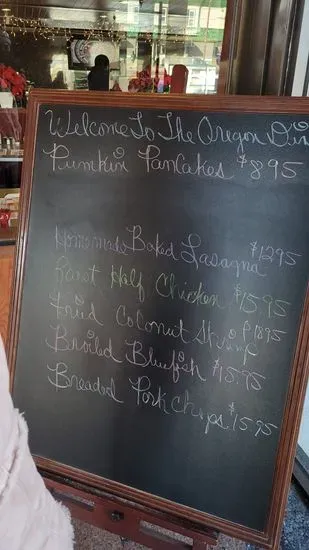 Welcome To The Oregon Din
Pumkin Pancakes $8.95
Homemade Baked Lasagna $12.95
Raost Half Chicken $15.95
Fried Coconut Shrimp 18.95
Broiled Bluefish $15.95
Breaded Pork Chops $15.95